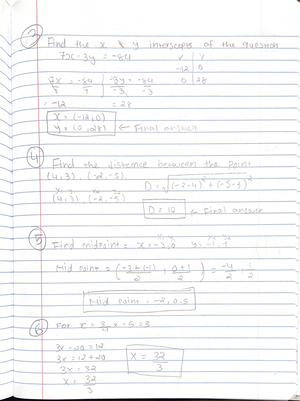 ③ Find the x & y intercepts of the question
7x - 3y = -84
x y
-12 0
0 28
7x/7 = -84/7
-3y/-3 = -84/-3
= -12
= 28
x = (-12,0)
y = (0,28) ← Final answer
④ Find the distance between the point
(4,3), (-2,-5)
D = √(-2-4)² + (-5-3)²
(4,3), (-2,-5)
D = 10 ← Final answer
⑤ Find midpoint: x = -3,0 y = -1,1
Mid point = (-3+(-1)/2, 0+1/2) = -4/2, 1/2
Mid point = -2, 0.5
⑥ For x = 3/4 x - 5 = 3
3x - 20 = 12
3x = 12+20
3x = 32
x = 32/3
x = 32/3